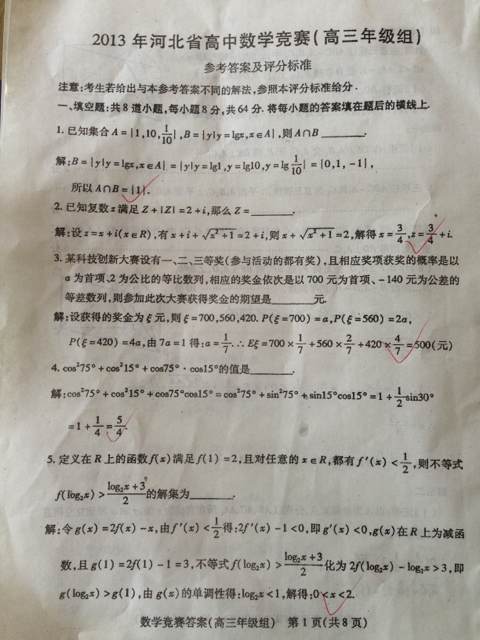 2013年河北省高中数学竞赛(高三年级组)
参考答案及评分标准
注意:考生若给出与本参考答案不同的解法,参照本评分标准给分.
一、填空题:共8道小题,每小题8分,共64分.将每小题的答案填在题后的横线上.
1.已知集合A={1,10,1/10},B={y|y=lgx,x∈A},则A∩B______.
解:B={y|y=lgx,x∈A}={y|y=lg1,y=lg10,y=lg1/10}={0,1,-1},
所以A∩B={1}.
2.已知复数z满足Z+|Z|=2+i,那么Z=______.
解:设z=x+i(x∈R),有x+i+√(x²+1)=2+i,则x+√(x²+1)=2,解得x=3/4,z=3/4+i.
3.某科技创新大赛设有一、二、三等奖(参与活动的都有奖),且相应奖项获奖的概率是以
a为首项、2为公比的等比数列,相应的奖金依次是以700元为首项、-140元为公差的
等差数列,则参加此次大赛获得奖金的期望是______元.
解:设获得的奖金为ξ元,则ξ=700,560,420.P(ξ=700)=a,P(ξ=560)=2a,
P(ξ=420)=4a,由7a=1得:a=1/7.∴Eξ=700×1/7+560×2/7+420×4/7=500(元)
4.cos²75°+cos²15°+cos75°·cos15°的值是______.
解:cos²75°+cos²15°+cos75°cos15°=cos²75°+sin²75°+sin15°cos15°=1+1/2sin30°
=1+1/4=5/4.
5.定义在R上的函数f(x)满足f(1)=2,且对任意的x∈R,都有f′(x)<1/2,则不等式
f(log₂x)>(log₂x+3)/2的解集为______.
解:令g(x)=2f(x)-x,由f′(x)<1/2得:2f′(x)-1<0,即g′(x)<0,g(x)在R上为减函
数,且g(1)=2f(1)-1=3,不等式f(log₂x)>(log₂x+3)/2化为2f(log₂x)-log₂x>3,即
g(log₂x)>g(1),由g(x)的单调性得:log₂x<1,解得:0<x<2.
数学竞赛答案(高三年级组) 第1页(共8页)